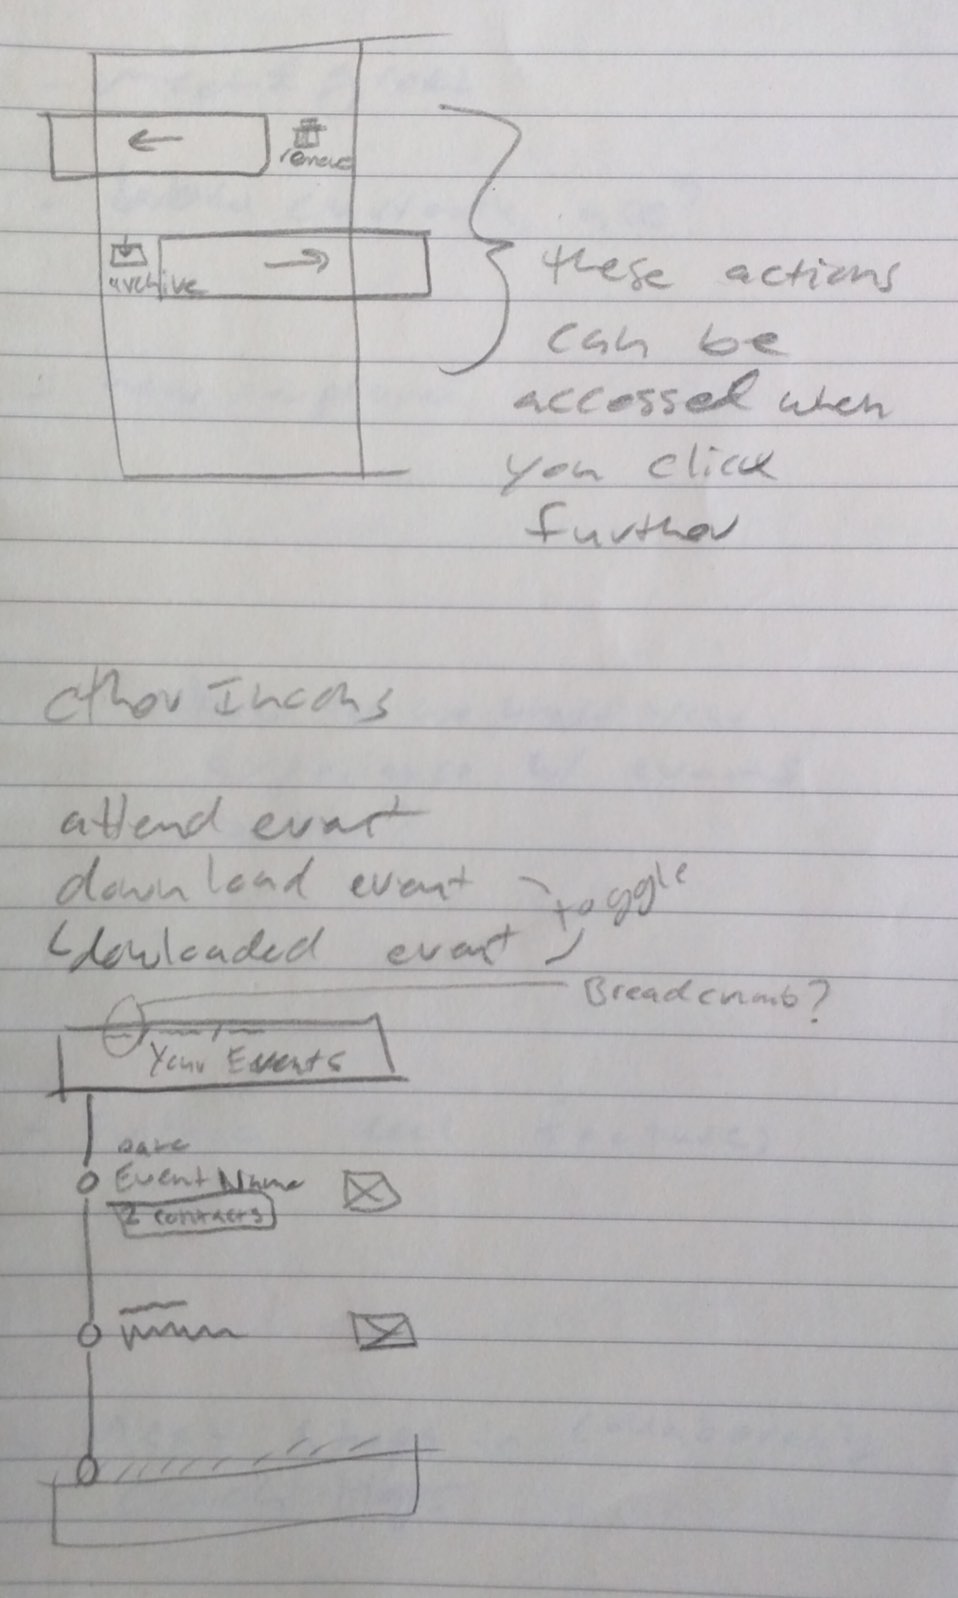 remove
archive
these actions
can be
accessed when
you click
further
other Incons
attend event
download event
toggle
(dowloaded event
Breadcrumb?
Your Events
Date
Event Name
2 contacts